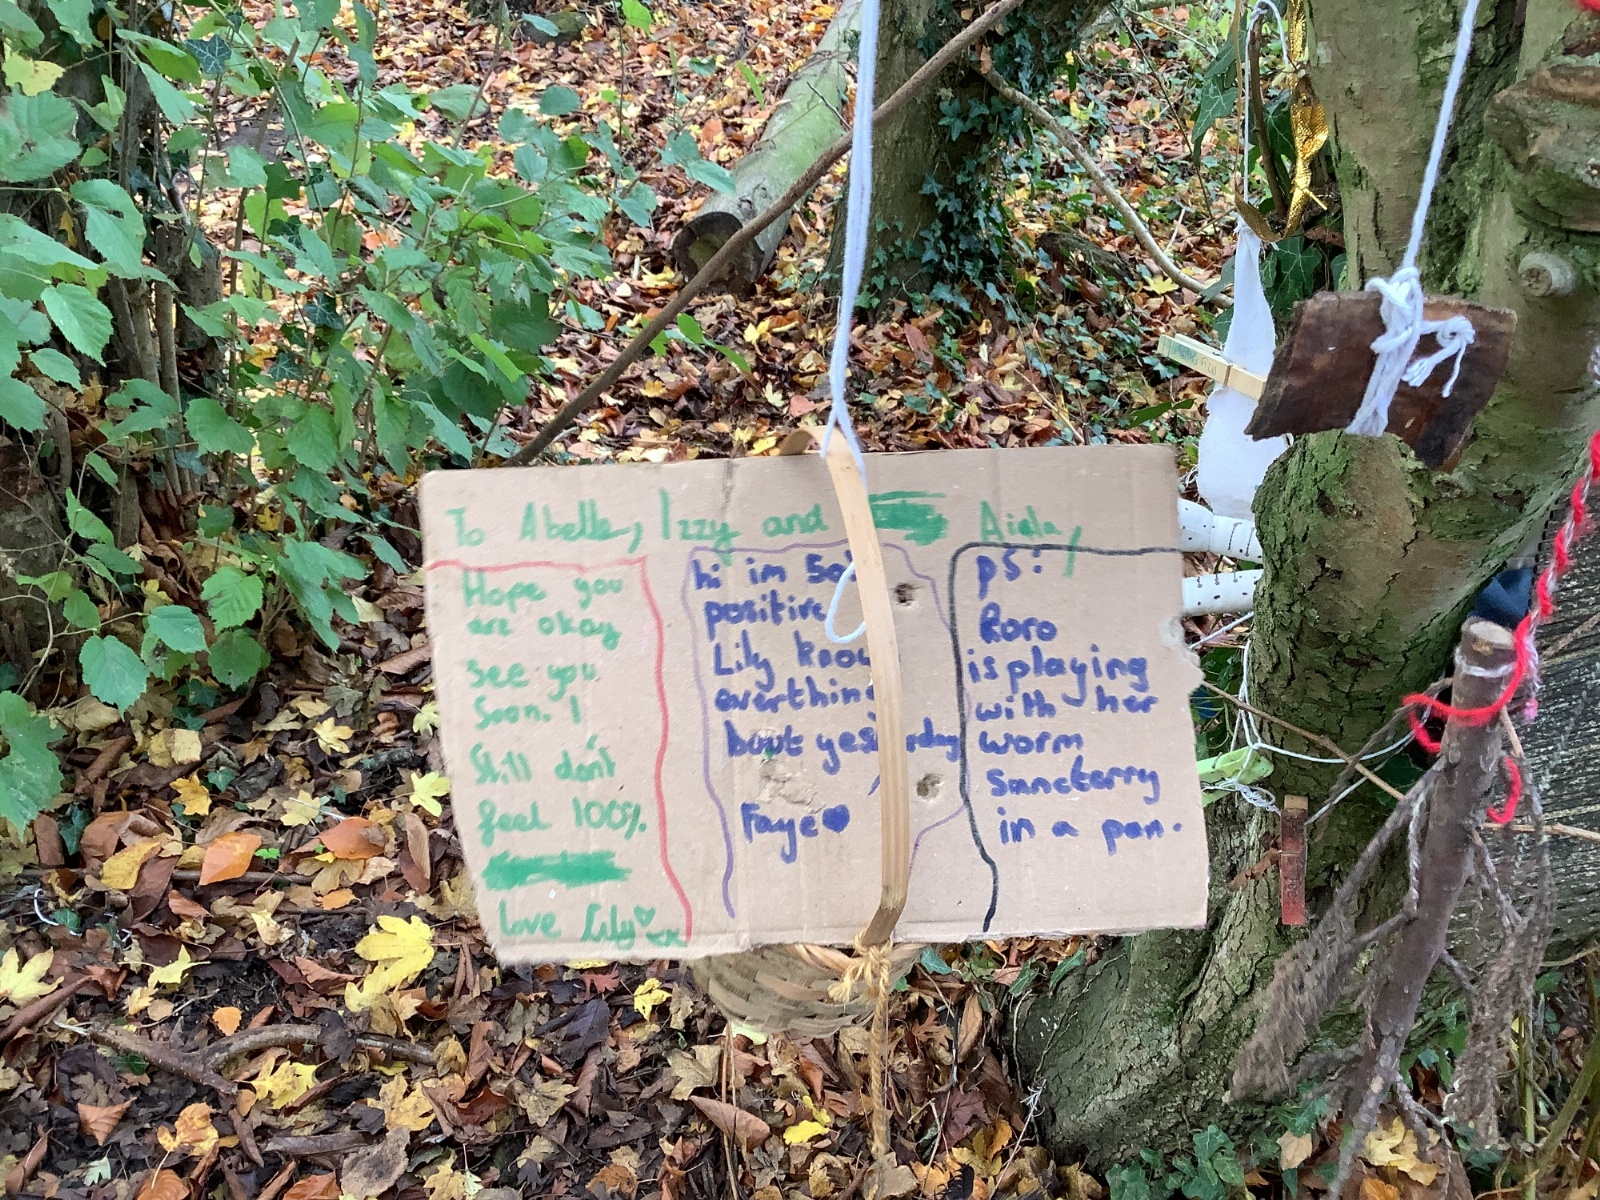 To Abelle, Izzy and Aiela,
Hope you
are okay
see you
soon. I
still don't
feel 100%.
love Lily xx
hi im
positive
Lily know
everthing
bout yesterday
Faye
PS:
Roro
is playing
with her
worm
sancterry
in a pan.